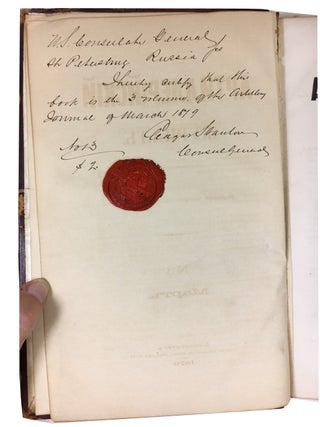 U.S. Consulate General
St Petersburg Russia
I hereby certify that this
book is the 3 volume of the Artillery
Journal of March 1879
Edgar Stanton
Consul General
No 13
$2
A